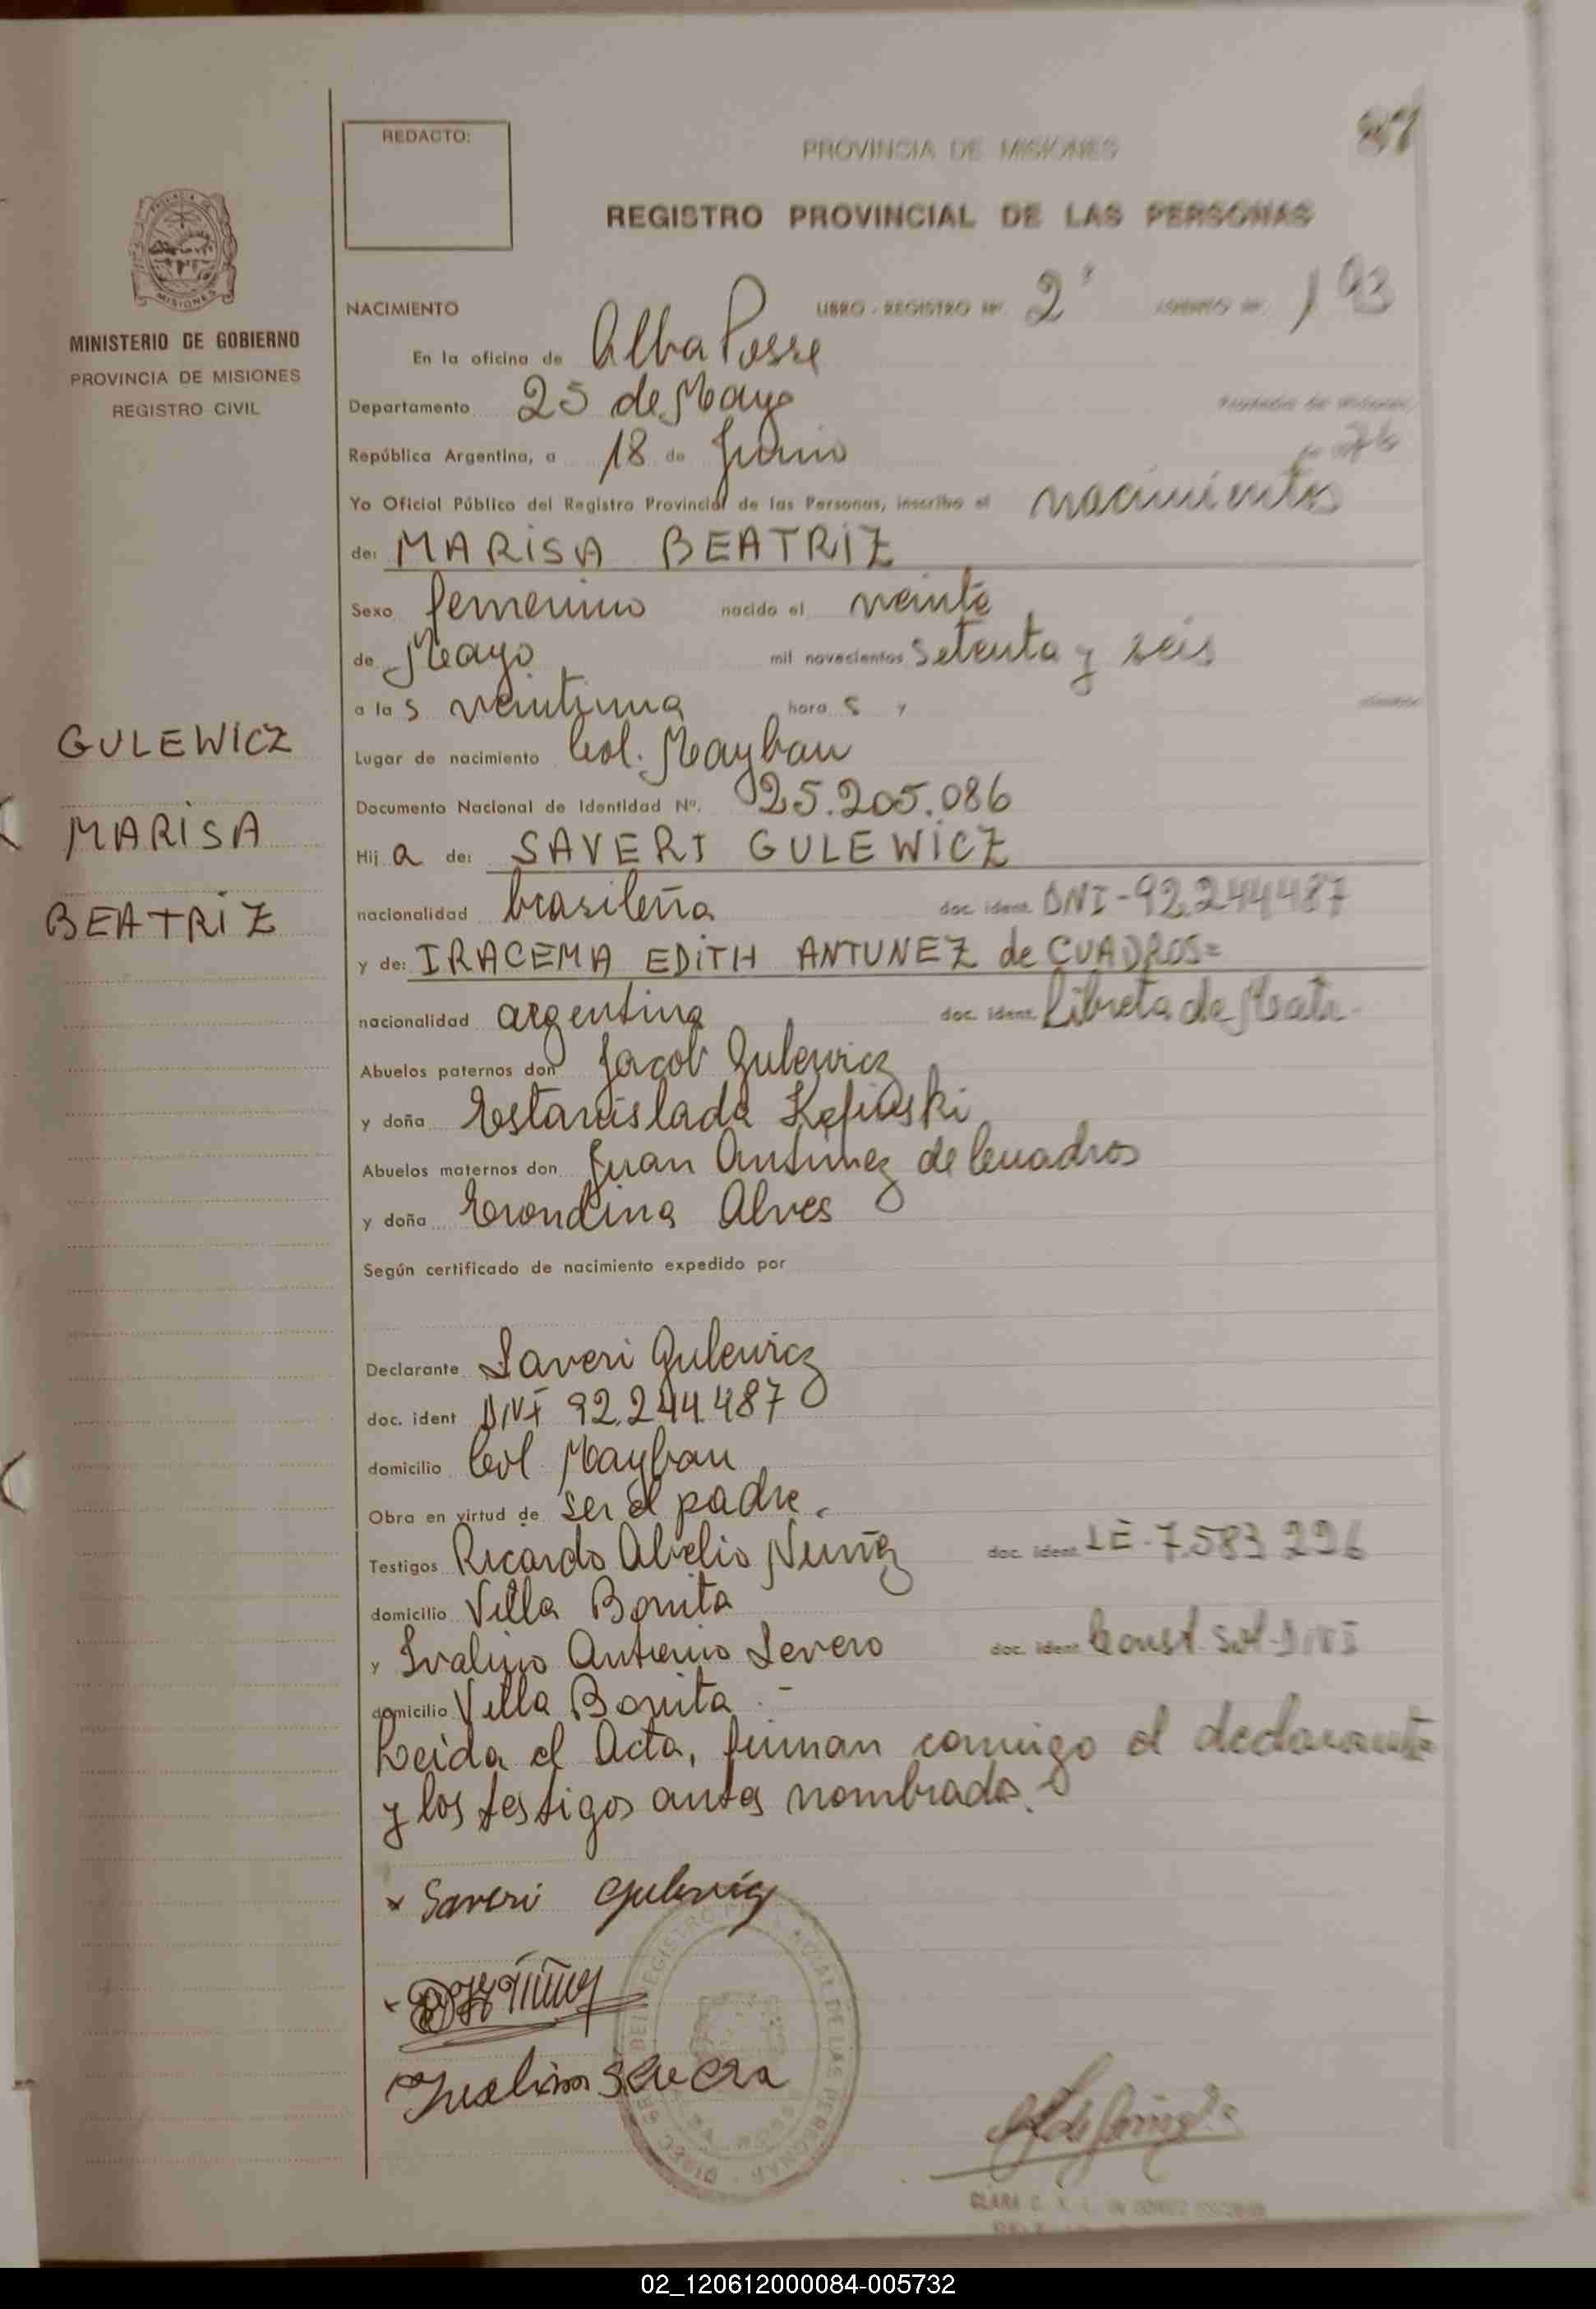 87
REDACTO:
PROVINCIA DE MISIONES
REGISTRO PROVINCIAL DE LAS PERSONAS
MISIONES
MINISTERIO DE GOBIERNO
PROVINCIA DE MISIONES
REGISTRO CIVIL
NACIMIENTO LIBRO - REGISTRO Nº 2º 193
En la oficina de Alba Posse
Departamento 25 de Mayo Provincia de Misiones,
República Argentina, a 18 de Junio de 976
Yo Oficial Público del Registro Provincial de las Personas, inscribo el nacimientos
de: MARISA BEATRIZ
Sexo femenino nacido el veinte
de Mayo mil novecientos setenta y seis
a las veintiuna horas y
GULEWICZ
Lugar de nacimiento Col. Mayban
Documento Nacional de Identidad Nº. 25.205.086
MARISA
Hija de: SAVERI GULEWICZ
BEATRIZ
nacionalidad brasileña doc. ident. DNI - 92.244487
y de: IRACEMA EDITH ANTUNEZ de CUADROS=
nacionalidad argentina doc. ident. Libreta de Matr.
Abuelos paternos don Jacob Gulewicz
y doña Estanislada
Abuelos maternos don Juan Antunez de Cuadros
y doña Erondina Alves
Según certificado de nacimiento expedido por
Declarante Saveri Gulewicz
doc. ident DNI 92.244.487
domicilio Col Mayban
Obra en virtud de ser el padre.
Testigos Ricardo Abelio Nuñez doc. ident. LE - 7.583 296
domicilio Villa Bonita
y Ivalino Antonio Severo doc. ident. Const. Sol-DNI
domicilio Villa Bonita.-
Leida el Acta, firman conmigo el declarante
y los testigos antes nombrados.
x Saveri Gulewicz
02_120612000084-005732